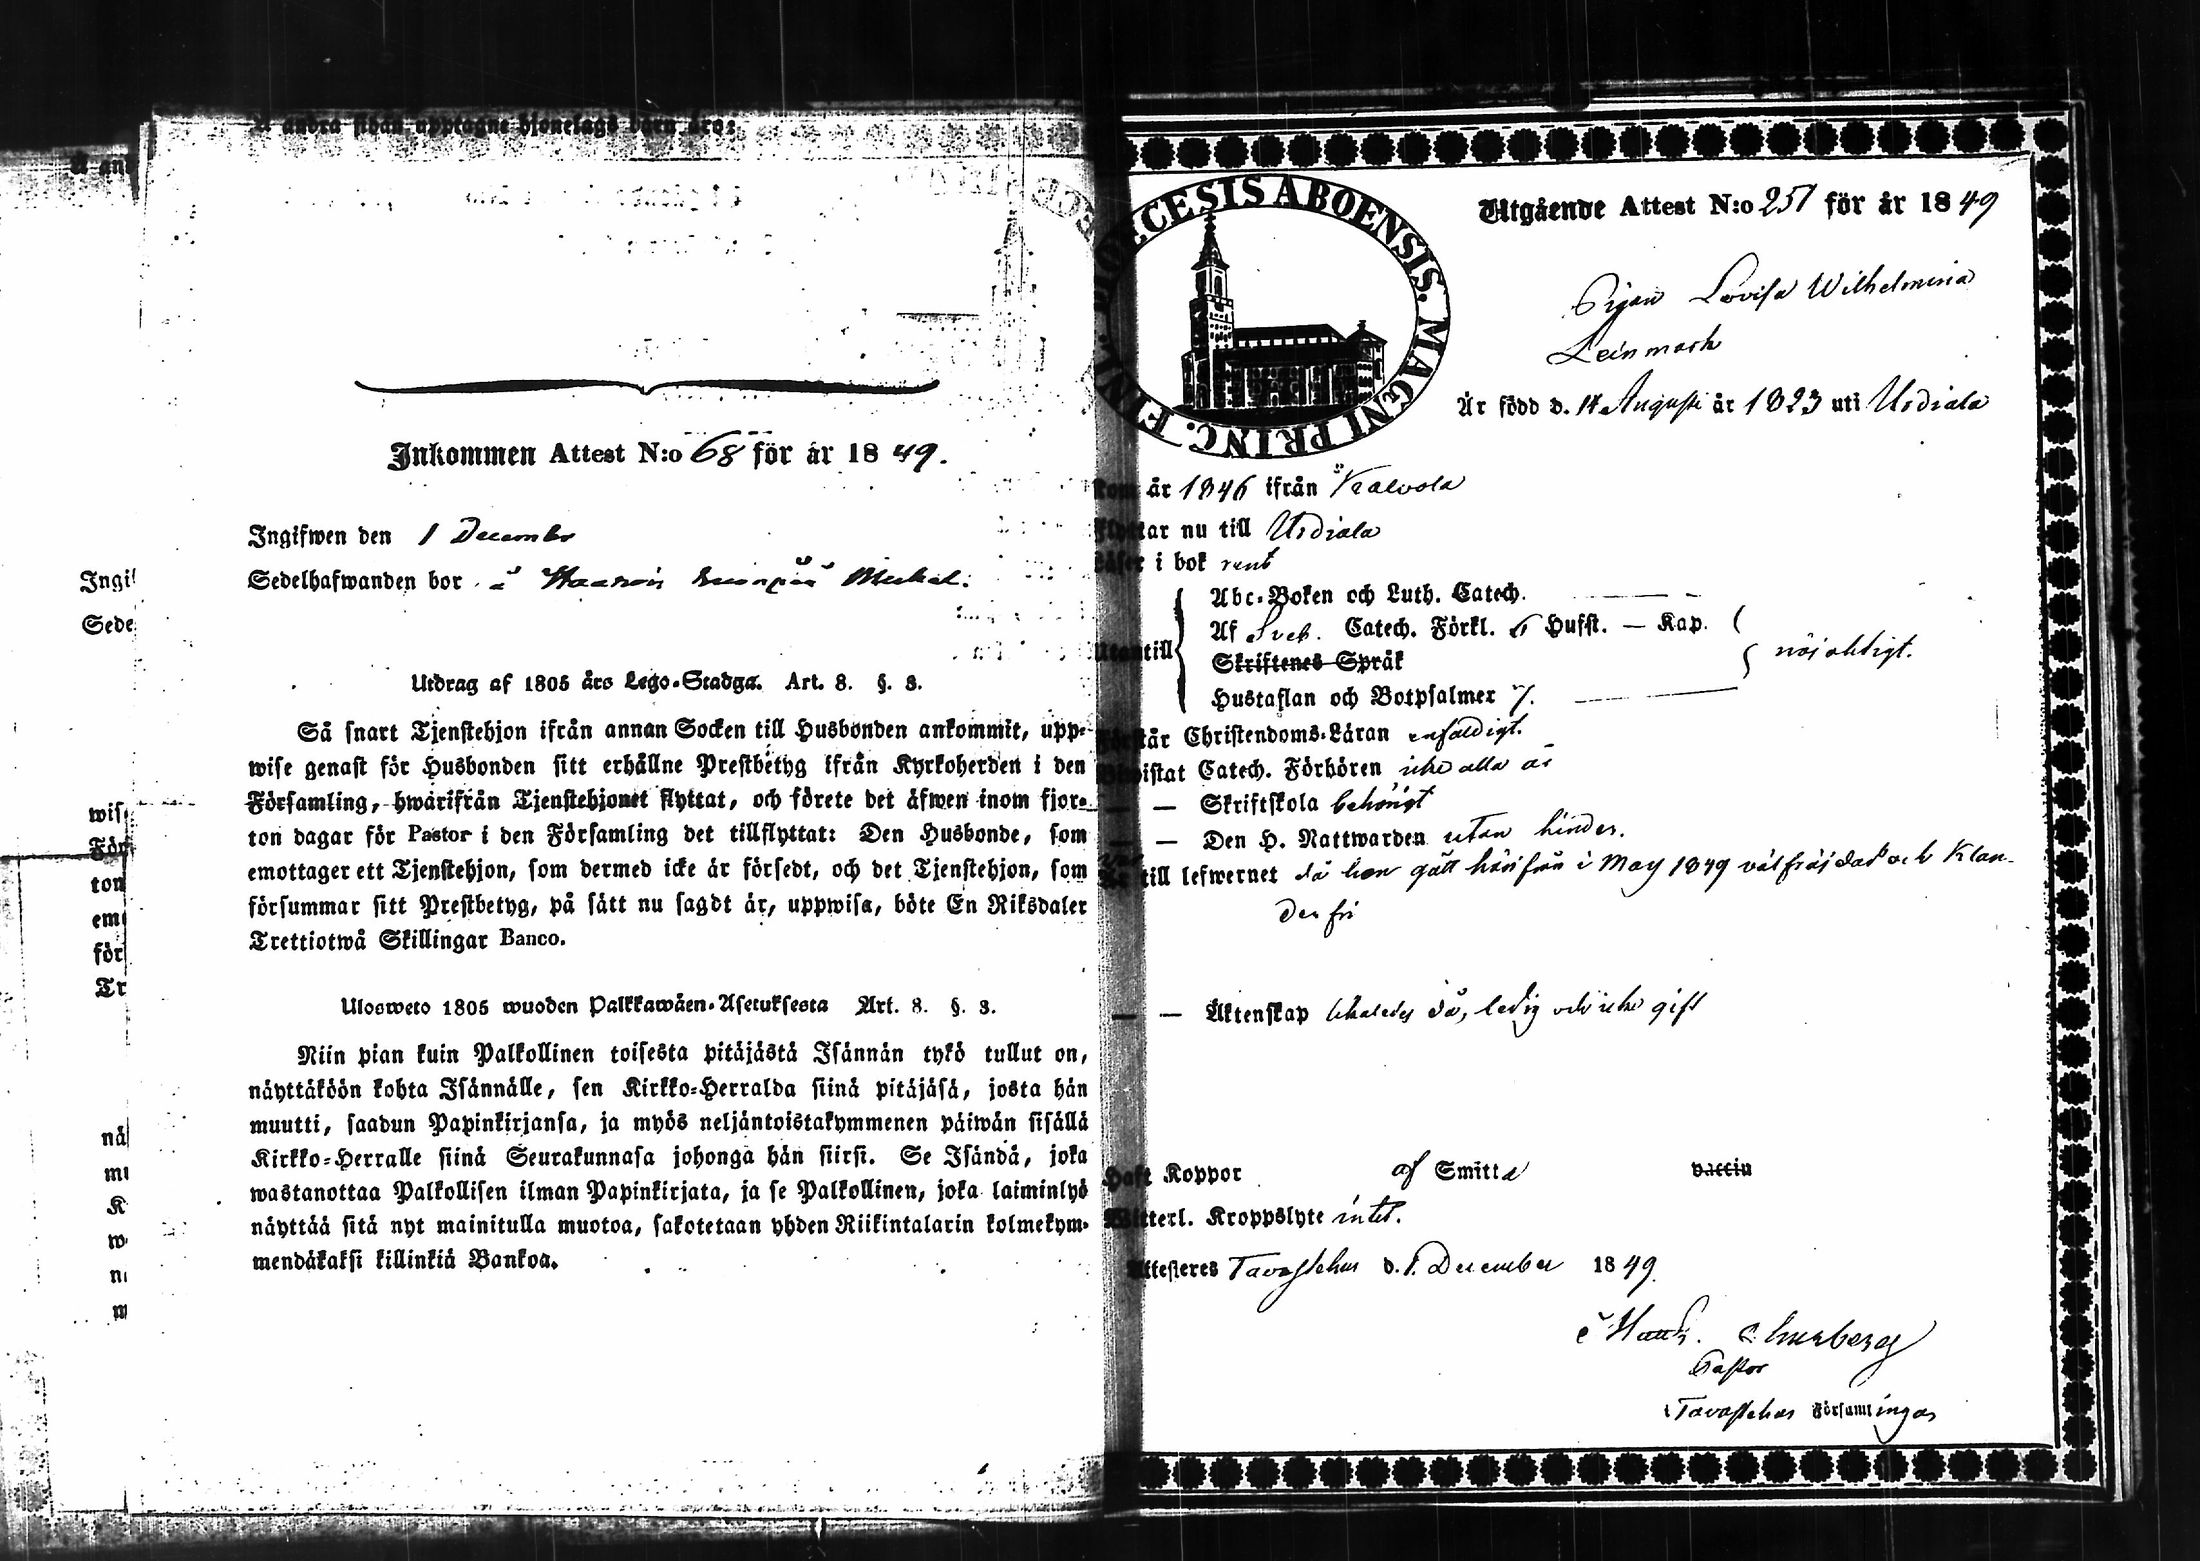 å andra sidan upptagne hjonelags barn äro:
Inkommen Attest N:o 68 för år 1849.
Ingifwen den 1 Decembr
Sedelhafwanden bor å
Utdrag af 1805 års Lego-Stadga. Art. 8. §. 3.
Så snart Tjenstehjon ifrån annan Socken till Husbonden ankommit, upp-
wise genast för Husbonden sitt erhållne Prestbetyg ifrån Kyrkoherden i den
Församling, hwarifrån Tjenstehjonet flyttat, och förete det äfwen inom fjor-
ton dagar för Pastor i den Församling det tillflyttat: Den Husbonde, som
emottager ett Tjenstehjon, som dermed icke är försedt, och det Tjenstehjon, som
försummar sitt Prestbetyg, på sätt nu sagdt är, uppwisa, böte En Riksdaler
Trettiotwå Skillingar Banco.
Ulosweto 1805 wuoden Palkkawäen-Asetuksesta Art. 8. §. 3.
Niin pian kuin Palkollinen toisesta pitäjästä Isännän tykö tullut on,
näyttäköön kohta Isännälle, sen Kirkko-Herralda siinä pitäjäsä, josta hän
muutti, saadun Papinkirjansa, ja myös neljäntoistakymmenen päiwän sisällä
Kirkko-Herralle siinä Seurakunnasa johonga hän siirsi. Se Isändä, joka
wastanottaa Palkollisen ilman Papinkirjata, ja se Palkollinen, joka laiminlyö
näyttää sitä nyt mainitulla muotoa, sakotetaan yhden Riikintalarin kolmekym-
mendäkaksi killinkiä Bankoa.
DIOECESIS ABOENSIS. MAGNI PRINC. FINL.
Utgående Attest N:o 251 för år 1849
Pigan Lovisa Wilhelmina
Leinmark
Är född d. 14 Augusti år 1823 uti Urdiala
Kom år 1846 ifrån Kalvola
Flyttar nu till Urdiala
Läser i bok rent
Utantill
Abc-Boken och Luth. Catech.
Af Sveb. Catech. Förkl. 6 Hufst. — Kap.
Skriftenes Språk
nöjaktigt.
Hustaflan och Botpsalmer 7.
Förstår Christendoms-Läran enfaldigt.
Bewistat Catech. Förhören icke alla år
— — Skriftskola behörigt
— — Den H. Nattwarden utan hinder.
till lefwernet då hon gått härifrån i May 1849 välfräjdad och Klan-
derfri
— — Äktenskap likaledes då, ledig och icke gift
Haft Koppor af Smitta vaccin
Witterl. Kroppslyte intet.
Attesteres Tavastehus d. 1. December 1849.
Pastor
i Tavastehus Församlingar